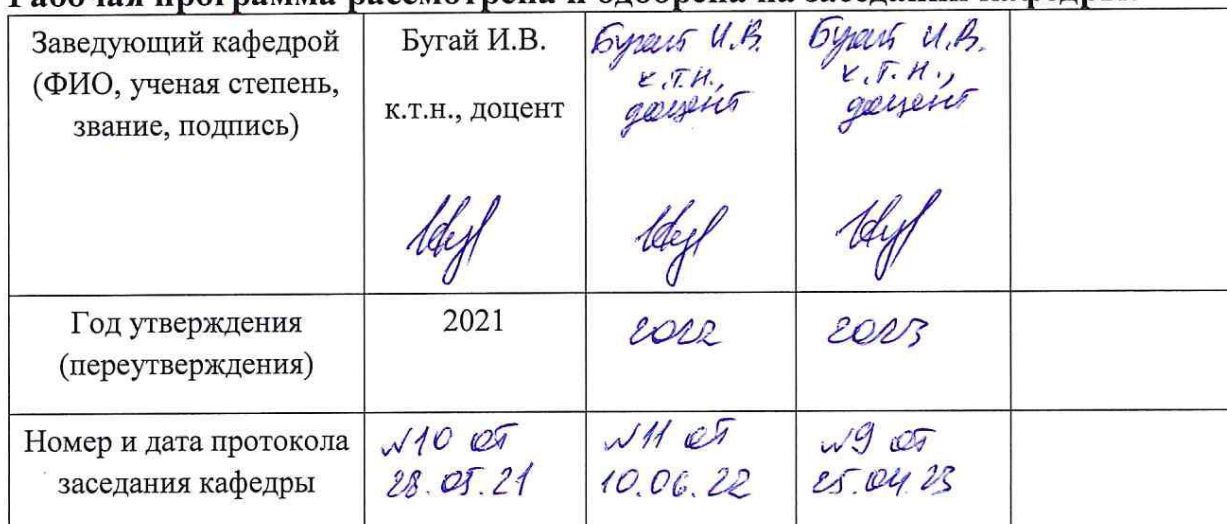 Рабочая программа рассмотрена и одобрена на заседании кафедры
Заведующий кафедрой
(ФИО, ученая степень,
звание, подпись)
Бугай И.В.
к.т.н., доцент
Бугай И.В.
к.т.н.,
доцент
Бугай И.В.
к.т.н.,
доцент
Год утверждения
(переутверждения)
2021
2022
2023
Номер и дата протокола
заседания кафедры
№10 от
28.05.21
№11 от
10.06.22
№9 от
25.04.23